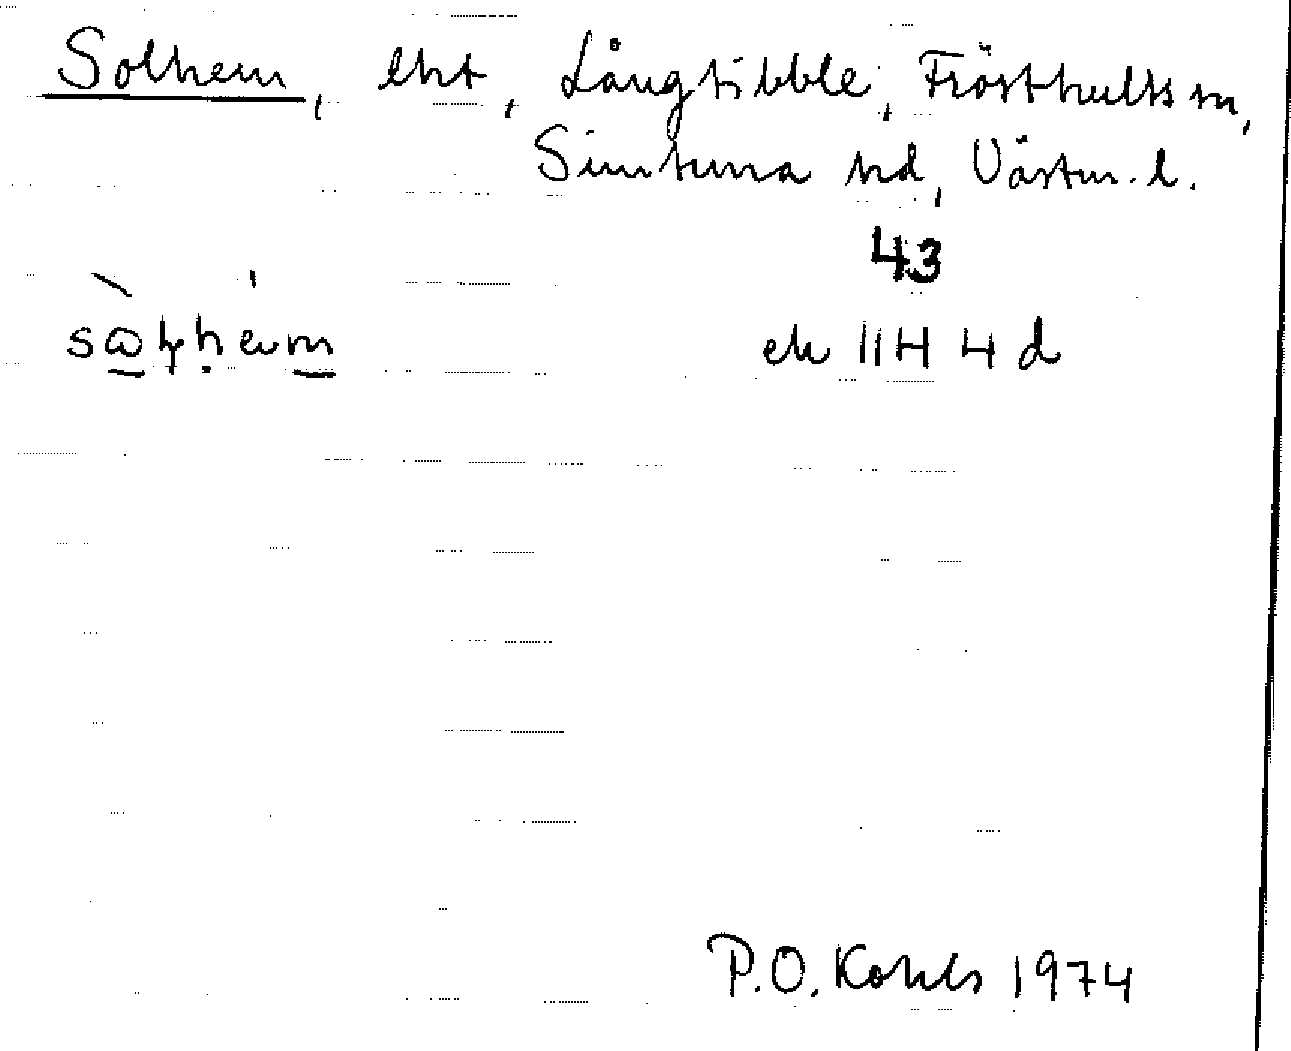 Solhem, lht, Långtibble, Frösthults sn,
Simtuna hd, Västm. l.
43
ek 11H 4d
P.O. Kohls 1974